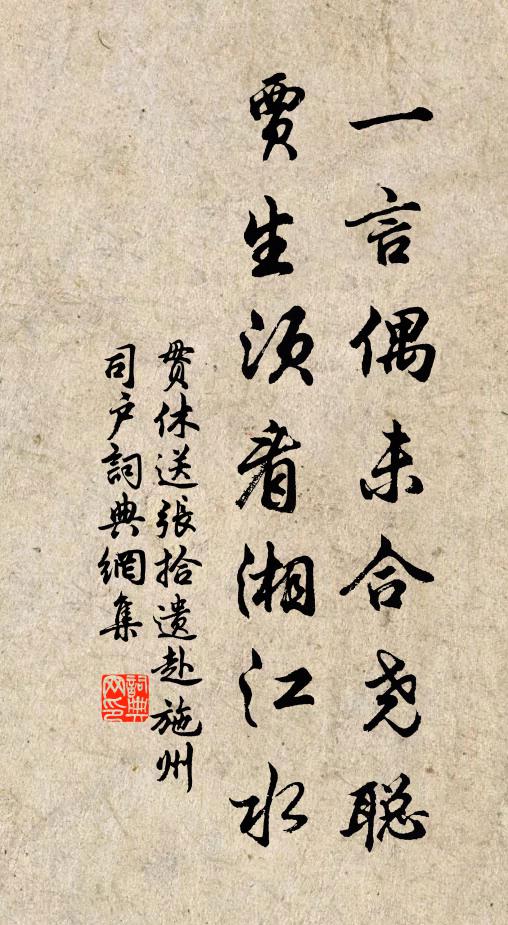 一言偶未合尧聪
贾生须看湘江水
贯休送張拾遗赴施州
司户詞典網集
詞典
网印